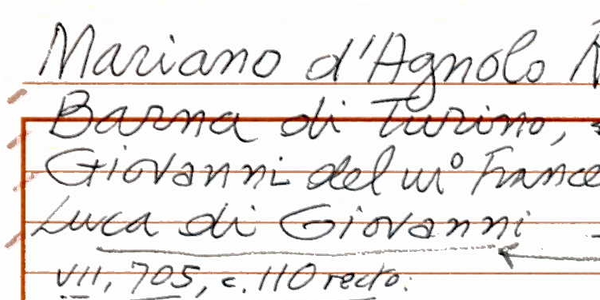 Mariano d'Agnolo
Barna di Turino,
Giovanni del mº France
Luca di Giovanni
VII, 705, c. 110 recto: